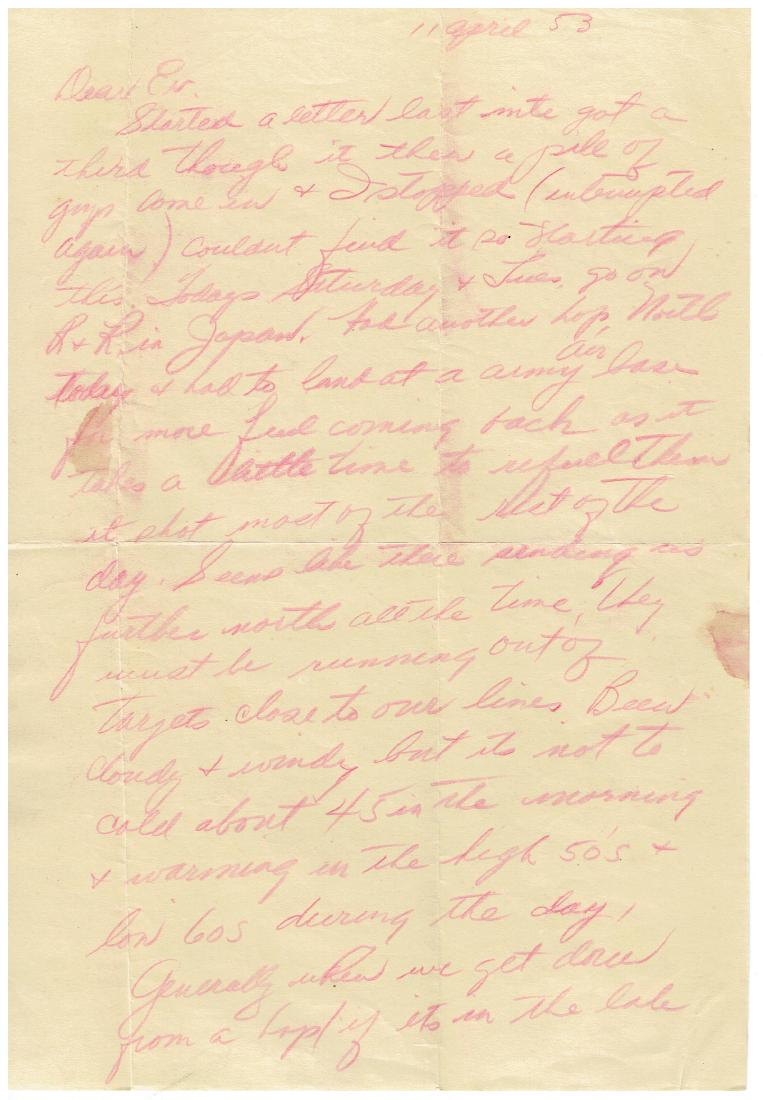 11 april 53
Dear Ev.
Started a letter last nite got a
third though it then a pile of
guys come in & I stopped (interrupted
again) couldnt find it so starting
this. Todays Saturday & Tues. go on
R & R in Japan. Had another hop North
today & had to land at a army air base
for more fuel coming back as it
takes a little time to refuel them
it shot most of the rest of the
day. Seems like there sending us
further north all the time, they
must be running out of
targets close to our lines Been
cloudy & windy but its not to
cold about 45 in the morning
& warming in the high 50's &
low 60s during the day,
Generally when we get done
from a hop if its in the late